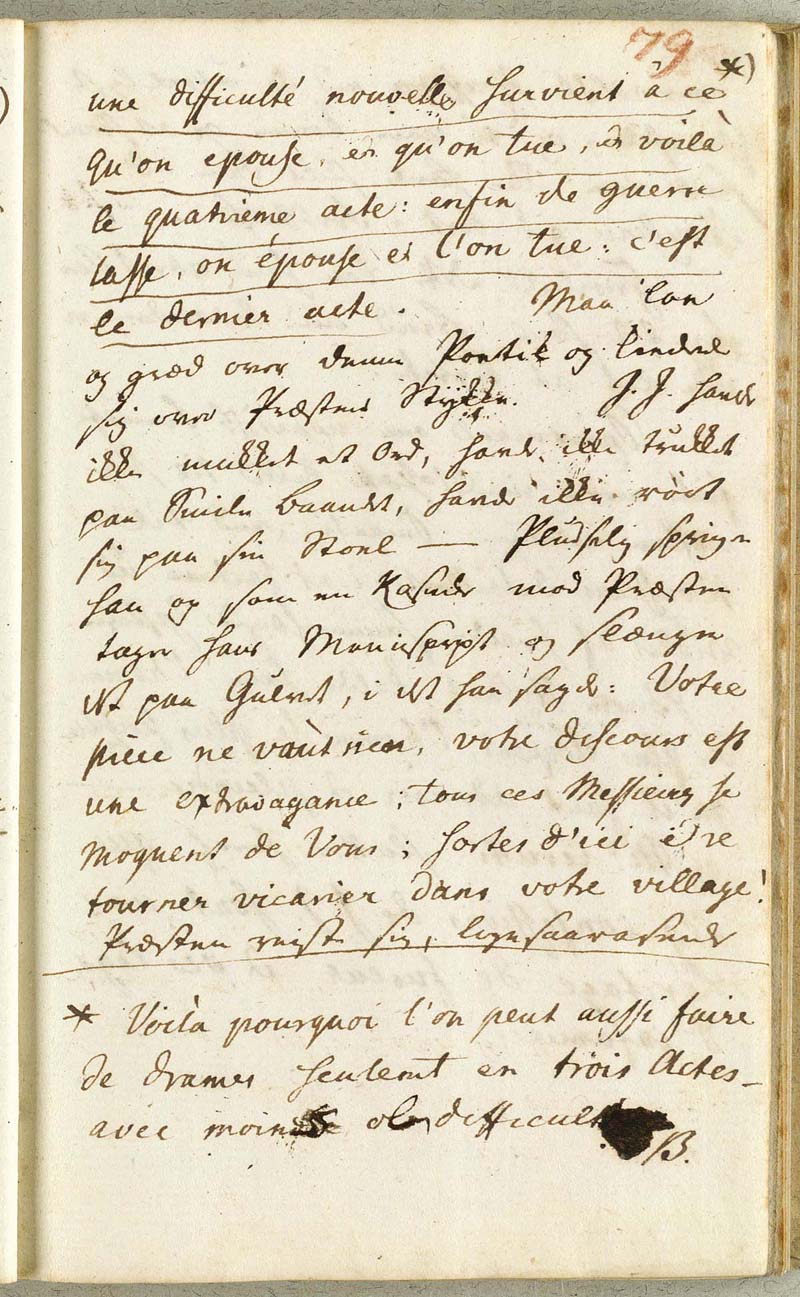 79
une difficulté nouvelle survient à ce *)
qu'on epouse, et qu'on tue, et voilà
le quatrieme acte: enfin de guerre
lasse, on épouse et l'on tue: c'est
le dernier acte. Man loe
og græd over denne Poetik og
sig over Præstens Stykke. J. J. havde
ikke mukket et Ord, havde ikke trukket
paa Smile Baandet, havde ikke rört
sig paa sin Stoel — Pludselig springer
han op som en Rasende mod Præsten
tager hans Manuskript og slænger
det paa Gulvet, i det han sagde: Votre
piece ne vaut rien, votre discours est
une extravagance; tous ces Messieurs se
moquent de Vous; sortes d'ici et re
tourner vicarier dans votre village!
Præsten reiste sig, ligesaa rasende
* Voila pourquoi l'on peut aussi faire
de drames seulemt en trois Actes -
avec moins de difficulté
B.